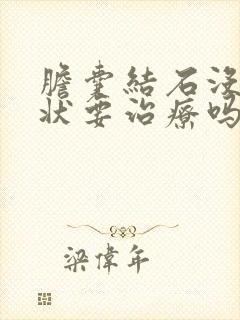 膽囊結石沒
狀要治療嗎
梁偉年